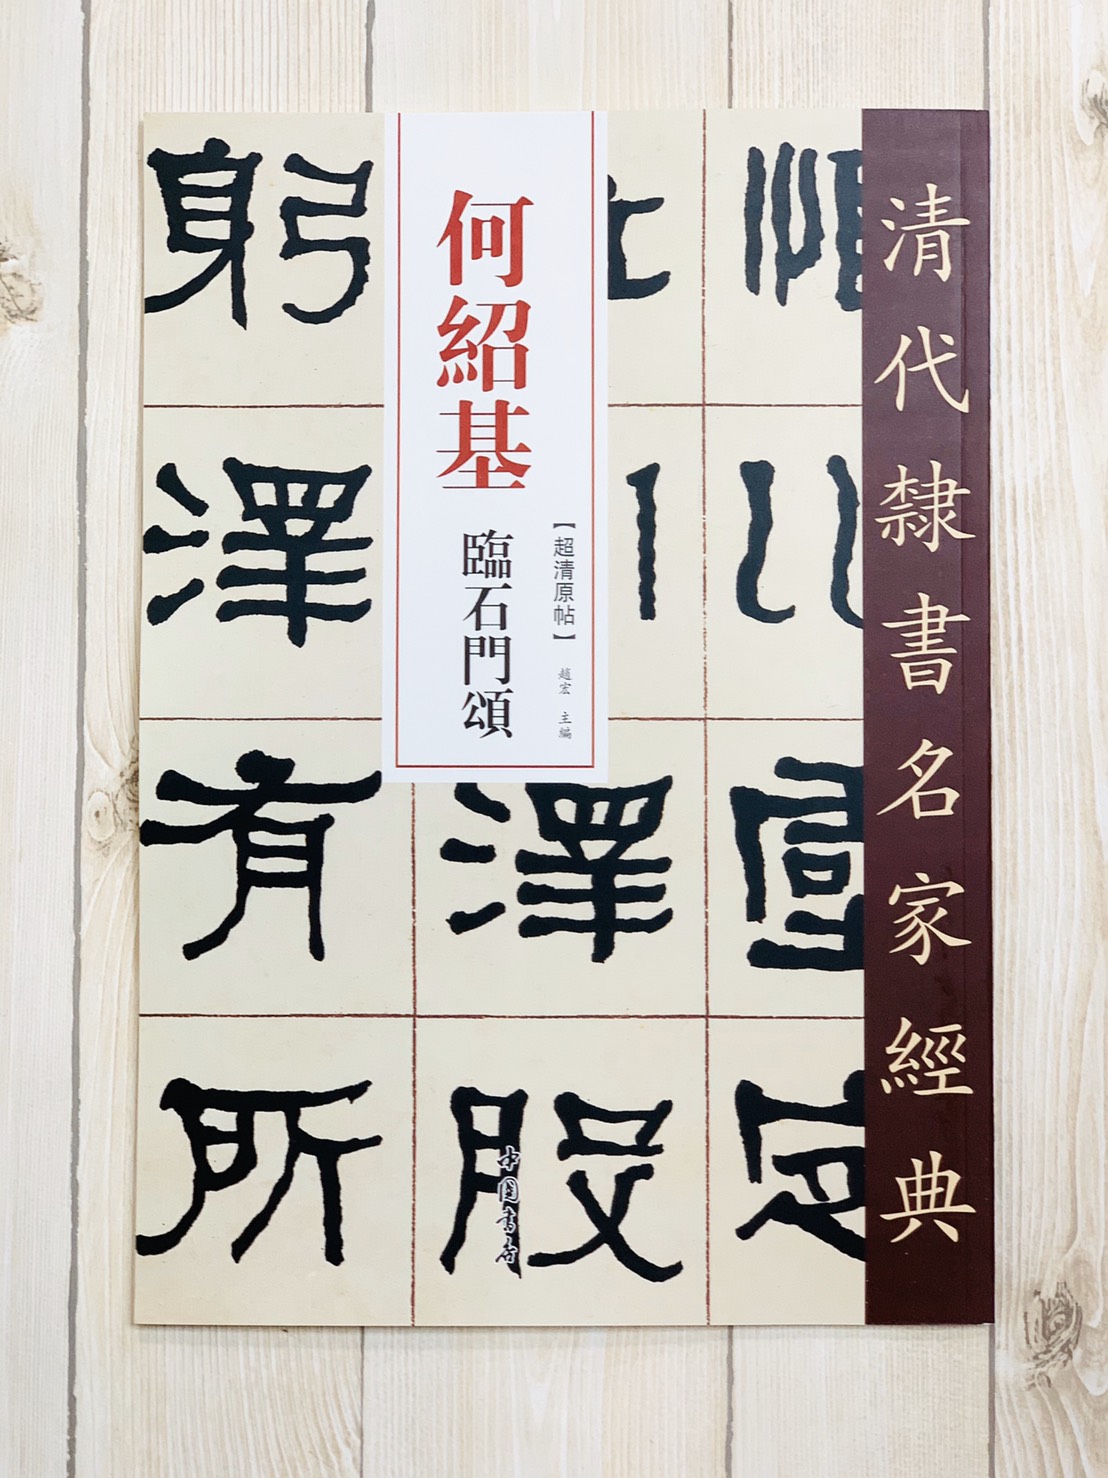 清代隸書名家經典
何紹基
臨石門頌
【超清原帖】
趙宏 主編
澤股
躬澤有所
中國書店